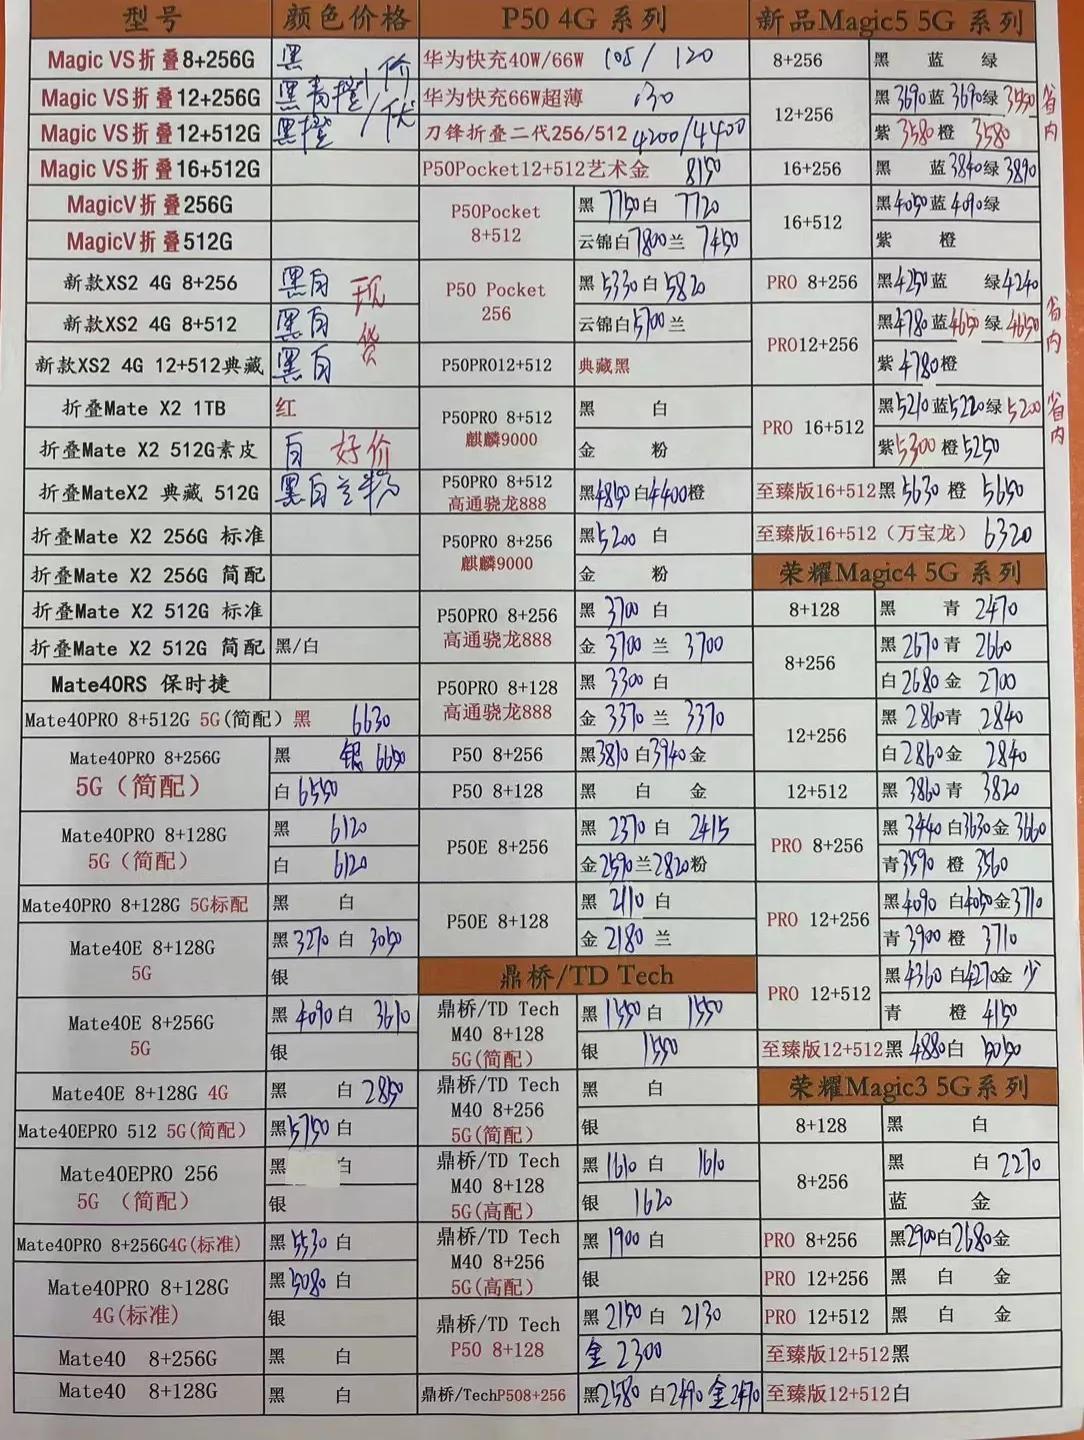 型号 颜色价格
Magic VS折叠8+256G 黑
Magic VS折叠12+256G 黑青橙 价
Magic VS折叠12+512G 黑橙 优
Magic VS折叠16+512G
MagicV折叠256G
MagicV折叠512G
新款XS2 4G 8+256 黑白 现
新款XS2 4G 8+512 黑白 货
新款XS2 4G 12+512典藏 黑白
折叠Mate X2 1TB 红
折叠Mate X2 512G素皮 白 好价
折叠MateX2 典藏 512G 黑白兰粉
折叠Mate X2 256G 标准
折叠Mate X2 256G 简配
折叠Mate X2 512G 标准
折叠Mate X2 512G 简配 黑/白
Mate40RS 保时捷
Mate40PRO 8+512G 5G(简配) 黑 6630
Mate40PRO 8+256G 黑 银 6650
5G(简配) 白 6550
Mate40PRO 8+128G 黑 6120
5G(简配) 白 6120
Mate40PRO 8+128G 5G标配 黑 白
Mate40E 8+128G 黑 3270 白 3050
5G 银
Mate40E 8+256G 黑 4090 白 3610
5G 银
Mate40E 8+128G 4G 黑 白 2850
Mate40EPRO 512 5G(简配) 黑 5750 白
Mate40EPRO 256 黑 白
5G (简配) 银
Mate40PRO 8+256G4G(标准) 黑 5530 白
Mate40PRO 8+128G 黑 5080 白
4G(标准) 银
Mate40 8+256G 黑 白
Mate40 8+128G 黑 白
P50 4G 系列
华为快充40W/66W 105/120
华为快充66W超薄 130
刀锋折叠二代256/512 4200/4400
P50Pocket12+512艺术金 8150
P50Pocket 黑 7750 白 7720
8+512 云锦白 7800 兰 7450
P50 Pocket 黑 5330 白 5820
256 云锦白 5700 兰
P50PRO12+512 典藏黑
P50PRO 8+512 黑 白
麒麟9000 金 粉
P50PRO 8+512
高通骁龙888 黑 4850 白 4400 橙
P50PRO 8+256 黑 5200 白
麒麟9000 金 粉
P50PRO 8+256 黑 3700 白
高通骁龙888 金 3700 兰 3700
P50PRO 8+128 黑 3300 白
高通骁龙888 金 3370 兰 3370
P50 8+256 黑 3810 白 3940 金
P50 8+128 黑 白 金
P50E 8+256 黑 2370 白 2415
金 2590 兰 2820 粉
P50E 8+128 黑 2110 白
金 2180 兰
鼎桥/TD Tech
鼎桥/TD Tech 黑 1550 白 1550
M40 8+128
5G(简配) 银 1550
鼎桥/TD Tech 黑 白
M40 8+256
5G(简配) 银
鼎桥/TD Tech 黑 1610 白 1610
M40 8+128
5G(高配) 银 1620
鼎桥/TD Tech 黑 1900 白
M40 8+256
5G(高配) 银
鼎桥/TD Tech 黑 2150 白 2130
P50 8+128 金 2300
鼎桥/TechP508+256 黑 2580 白 2490 金 2470
新品Magic5 5G 系列
8+256 黑 蓝 绿
12+256 黑 3690 蓝 3690 绿 3550 省内
紫 3580 橙 3580
16+256 黑 蓝 3840 绿 3890
16+512 黑 4050 蓝 4090 绿
紫 橙
PRO 8+256 黑 4250 蓝 绿 4240
PRO12+256 黑 4780 蓝 4650 绿 4650 省内
紫 4780 橙
PRO 16+512 黑 5210 蓝 5220 绿 5200 省内
紫 5300 橙 5250
至臻版16+512 黑 5630 橙 5650
至臻版16+512(万宝龙) 6320
荣耀Magic4 5G 系列
8+128 黑 青 2470
8+256 黑 2670 青 2660
白 2680 金 2700
12+256 黑 2860 青 2840
白 2860 金 2840
12+512 黑 3860 青 3820
PRO 8+256 黑 3440 白 3630 金 3660
青 3590 橙 3560
PRO 12+256 黑 4090 白 4050 金 3710
青 3900 橙 3710
PRO 12+512 黑 4360 白 4270 金 少
青 橙 4150
至臻版12+512 黑 4880 白 5050
荣耀Magic3 5G系列
8+128 黑 白
8+256 黑 白 2270
蓝 金
PRO 8+256 黑 2900 白 2680 金
PRO 12+256 黑 白 金
PRO 12+512 黑 白 金
至臻版12+512 黑
至臻版12+512 白